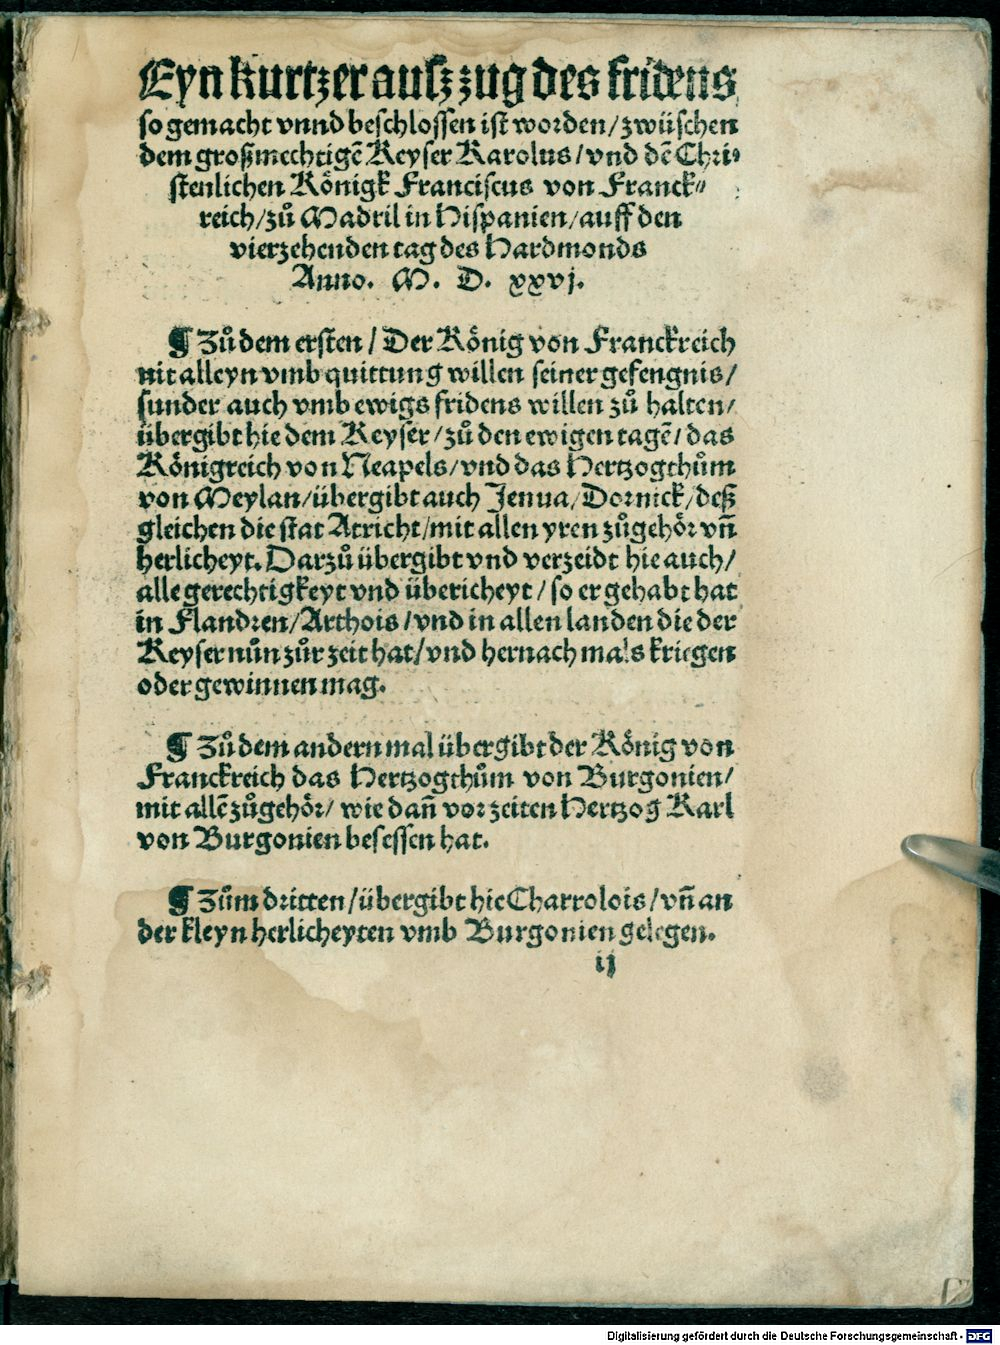 Eyn kurtzer auſzzug des fridens
ſo gemacht vnnd beſchloſſen iſt worden/zwüſchen
dem großmechtigē Keyſer Karolus/vnd dē Chri⸗
ſtenlichen Königk Franciſcus von Franck⸗
reich/zů Madril in Hiſpanien/auff den
vierzehenden tag des Hardmonds
Anno. M. D. xxvj.
¶ Zů dem erſten/Der König von Franckreich
nit alleyn vmb quittung willen ſeiner gefengnis/
ſunder auch vmb ewigs fridens willen zů halten/
übergibt hie dem Keyſer/zů den ewigen tagē/das
Königreich von Neapels/vnd das Hertzogthům
von Meylan/übergibt auch Jenua/Dornick/deß
gleichen die ſtat Atricht/mit allen yren zůgehör vñ
herlicheyt. Darzů übergibt vnd verzeidt hie auch/
alle gerechtigkeyt vnd übericheyt/ſo er gehabt hat
in Flandren/Arthois/vnd in allen landen die der
Keyſer nůn zůr zeit hat/vnd hernach mals kriegen
oder gewinnen mag.
¶ Zů dem andern mal übergibt der König von
Franckreich das Hertzogthům von Burgonien/
mit allē zůgehör/wie dañ vor zeiten Hertzog Karl
von Burgonien beſeſſen hat.
¶ Zům dritten/übergibt hie Charrolois/vñ an
der kleyn herlicheyten vmb Burgonien gelegen.
ij
Digitalisierung gefördert durch die Deutsche Forschungsgemeinschaft - DFG